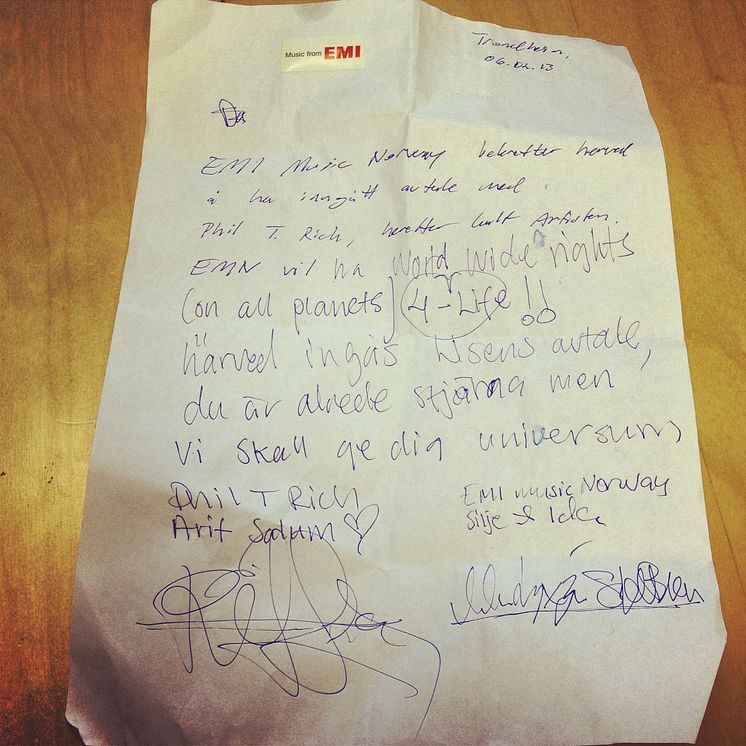 Music from EMI
Trondheim,
06.02.13
EMI Music Norway bekrefter herved
å ha inngått avtale med
Phil T. Rich, heretter kalt Artisten.
EMN vil ha world wide rights
(on all planets) 4-Life!!
härved ingås lisens avtale,
du är alrede stjärna men
vi skall ge dig universum,
Phil T Rich
Arif Salum ♡
EMI music Norway
Silje & Ida